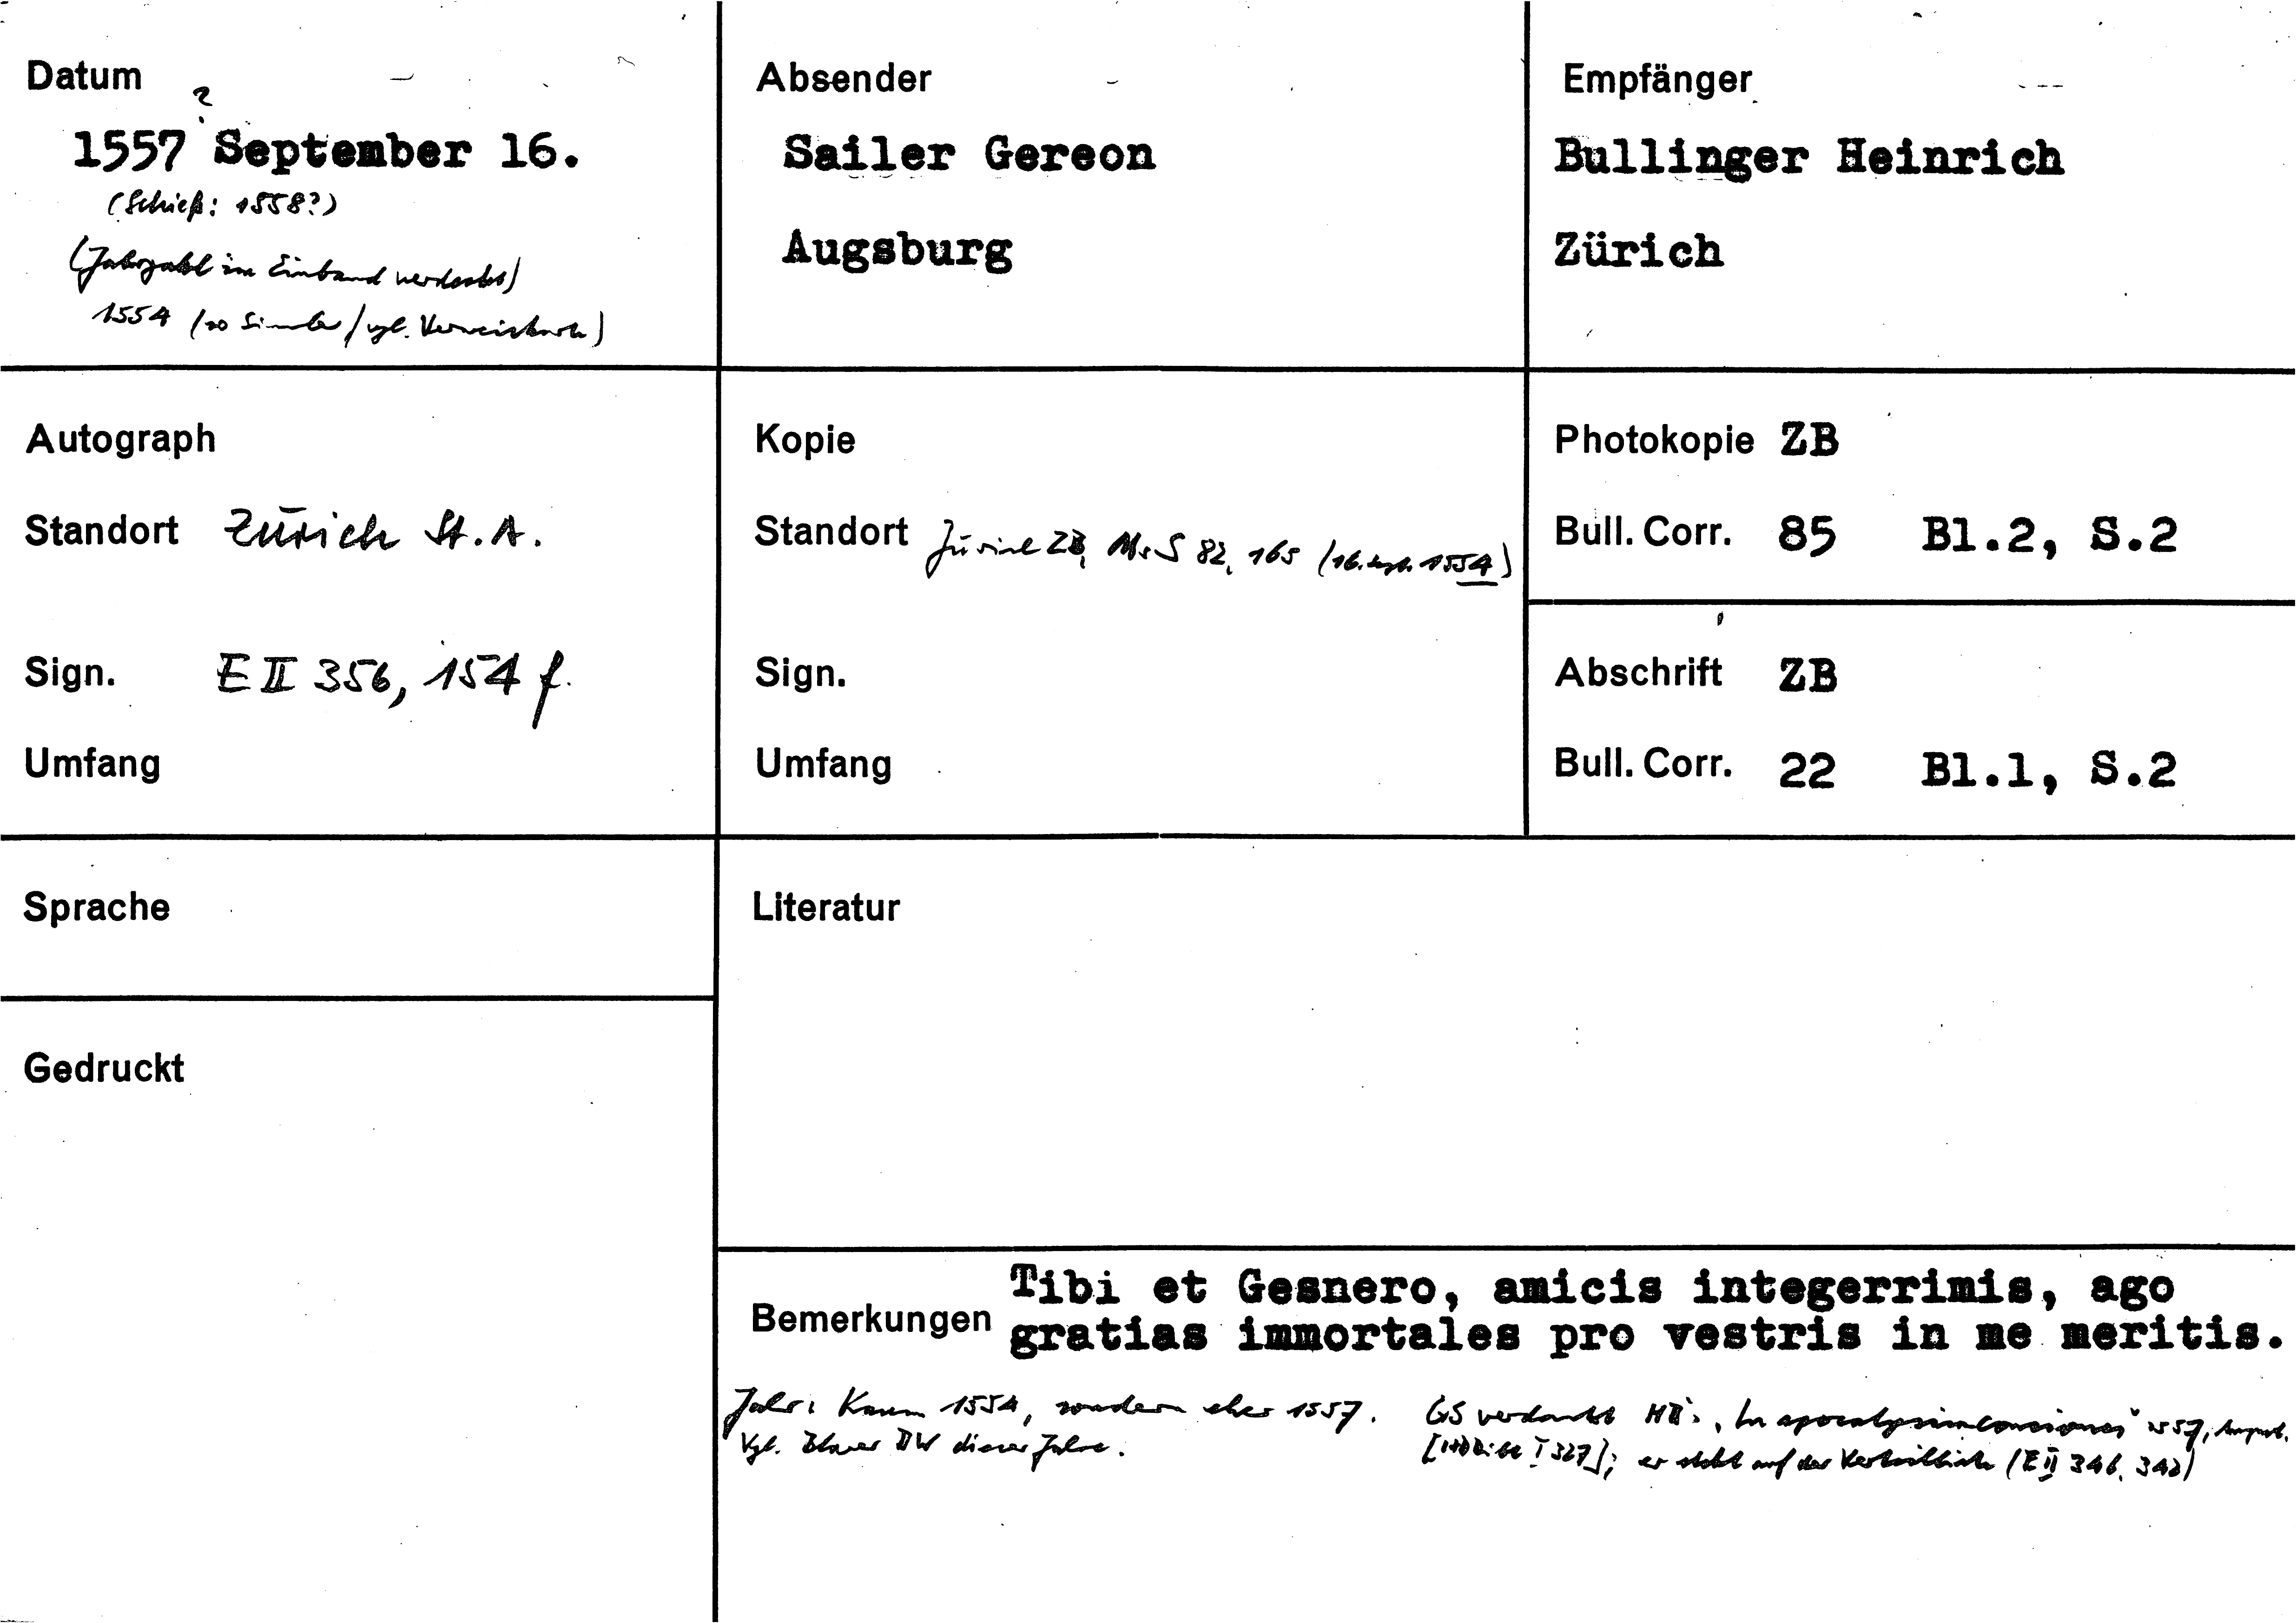 Datum
?
1557 September 16.
(Schieß: 1558?)
(Jahrzahl im Einband verdeckt)
1554 (so Simler / vgl. Verweiskarte)
Absender
Sailer Gereon
Augsburg
Empfänger
Bullinger Heinrich
Zürich
Autograph
Standort Zürich St.A.
Sign. E II 356, 154 f.
Umfang
Kopie
Standort Zürich ZB, Ms S 82, 165 (16. Sept. 1554)
Sign.
Umfang
Photokopie ZB
Bull. Corr. 85 Bl.2, S.2
Abschrift ZB
Bull. Corr. 22 Bl.1, S.2
Sprache
Literatur
Gedruckt
Bemerkungen
Tibi et Gesnero, amicis integerrimis, ago
gratias immortales pro vestris in me meritis.
Jahr: Kaum 1554, sondern eher 1557.
Vgl. Blarer BW dieser Jahre.
GS verdankt HB's "In apocalypsim conciones" 1557, August.
[HBBibl I 327]; er steht auf der Verteilliste (E II 346, 342)